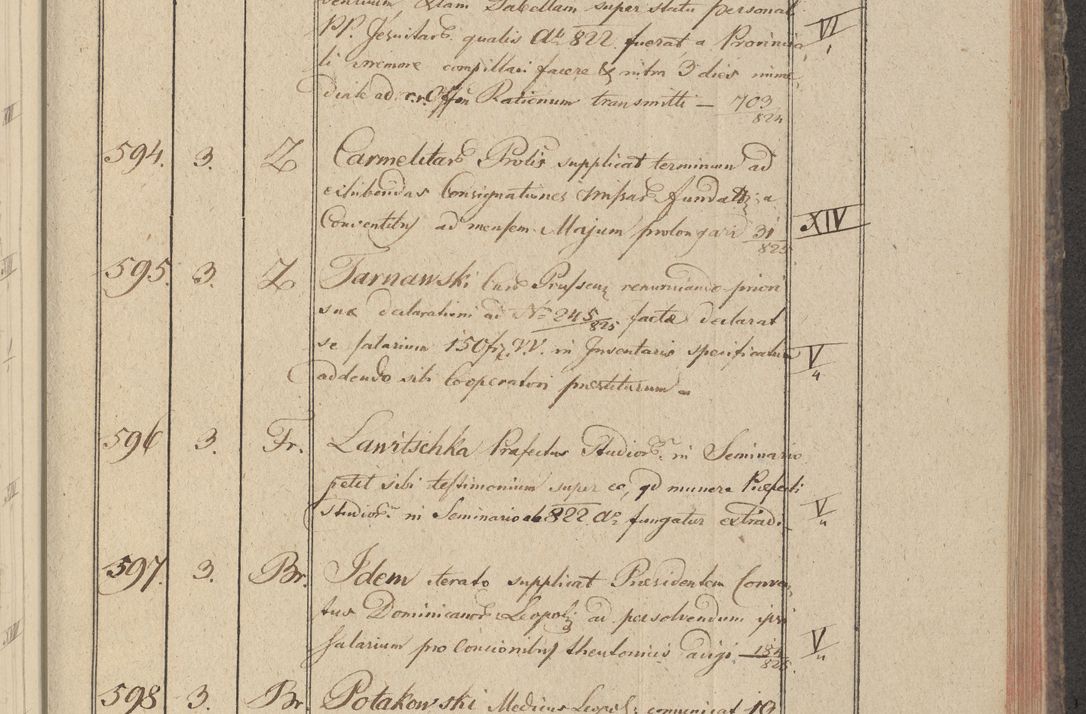 Tabellam super statu personali
PP. Jesuitar. qualis Ao 822 fuerat a Provincia VI
li compillari facere & intra 3 dies imme
diate ad Rationum transmitti — 703/824
594. 3. Z Carmelitar. Prolis supplicat terminum ad
exhibendas Consignationes Missar. fundatt. a
Conventibus ad mensem Majum prolongari 31/825 XIV
595. 3. Z Tarnawski Cur. renunciando priori
suae declarationi ad No 245/825 factae declarat
se salarium 150 f W.W. in Inventario specificatum V/4
addendo sibi Cooperatori praestiturum –
596 3. Fr. Lawitschka Praefectus Studior. in Seminario
petit sibi testimonium super eo, qd munere Praefecti
Studior. in Seminario ab 822 Ao fungatur extradi. V
597. 3. Br. Idem iterato supplicat Praesidentem Conven
tus Dominicanor. Leopol. ad persolvendum ipsi
Salarium pro Concionibus theutonicis adigi — V
598 3. Br. Potakowski Medicus Leopol. comunicat 19